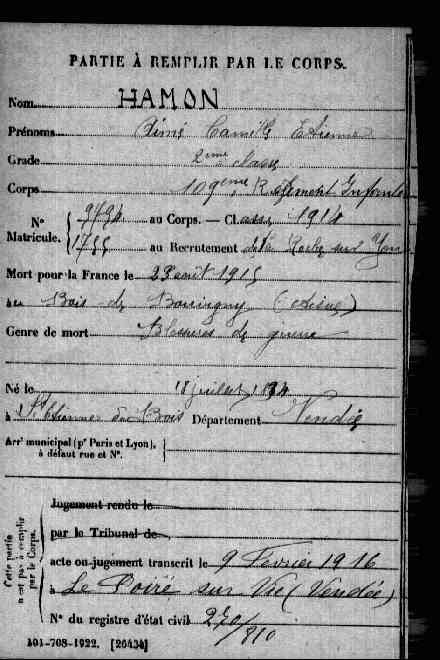 PARTIE À REMPLIR PAR LE CORPS.
Nom HAMON
Prénoms Aimé Camille Etienne
Grade 2ème classe
Corps 109ème Régiment Infanterie
N° Matricule. 9794 au Corps. — Classe 1914
1755 au Recrutement de La Roche sur Yon
Mort pour la France le 23 août 1915
au Bois de (Aisne)
Genre de mort Blessures de guerre
Né le 18 juillet 1894
à St Etienne du Bois Département Vendée
Arrt municipal (pr Paris et Lyon), à défaut rue et N°.
Cette partie n'est pas à remplir par le Corps.
Jugement rendu le
par le Tribunal de
acte ou jugement transcrit le 9 Février 1916
à Le Poiré sur Vie (Vendée)
N° du registre d'état civil 270/810
101-708-1922. [26434]